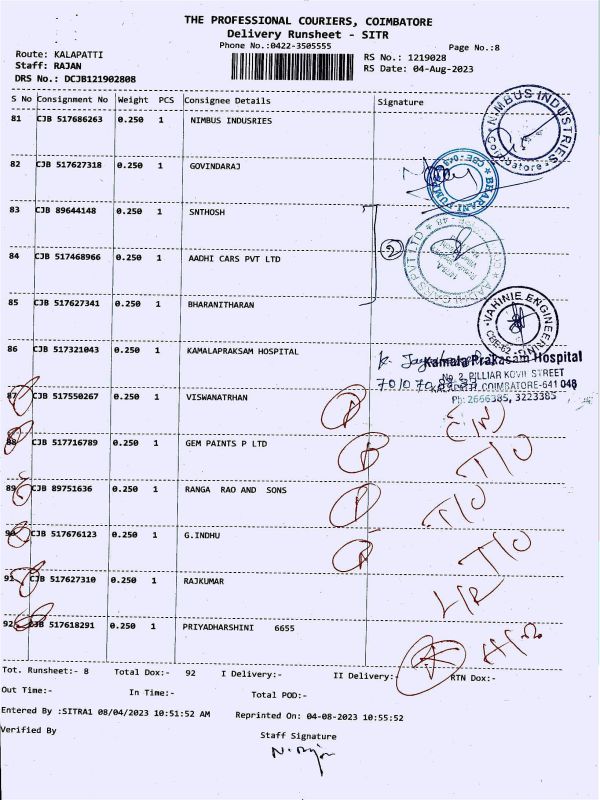 THE PROFESSIONAL COURIERS, COIMBATORE
Delivery Runsheet - SITR
Phone No.:0422-3505555
Page No.:8
Route: KALAPATTI
RS No.: 1219028
Staff: RAJAN
RS Date: 04-Aug-2023
DRS No.: DCJB121902808
S No Consignment No Weight PCS Consignee Details Signature
81 CJB 517686263 0.250 1 NIMBUS INDUSRIES
NIMBUS INDUSTRIES
Coimbatore
82 CJB 517627318 0.250 1 GOVINDARAJ
83 CJB 89644148 0.250 1 SNTHOSH
2
84 CJB 517468966 0.250 1 AADHI CARS PVT LTD
85 CJB 517627341 0.250 1 BHARANITHARAN
VAHINIE ENGINEERING
86 CJB 517321043 0.250 1 KAMALAPRAKSAM HOSPITAL
Kamala Prakasam Hospital
No 2, PILLIAR KOVIL STREET
COIMBATORE-641 048
Ph: 2666385, 3223385
87 CJB 517550267 0.250 1 VISWANATRHAN
88 CJB 517716789 0.250 1 GEM PAINTS P LTD
T/O
89 CJB 89751636 0.250 1 RANGA RAO AND SONS
T/O
90 CJB 517676123 0.250 1 G.INDHU
T/O
91 CJB 517627310 0.250 1 RAJKUMAR
92 CJB 517618291 0.250 1 PRIYADHARSHINI 6655
Tot. Runsheet:- 8 Total Dox:- 92 I Delivery:- II Delivery:- RTN Dox:-
Out Time:- In Time:- Total POD:-
Entered By :SITRA1 08/04/2023 10:51:52 AM Reprinted On: 04-08-2023 10:55:52
Verified By
Staff Signature